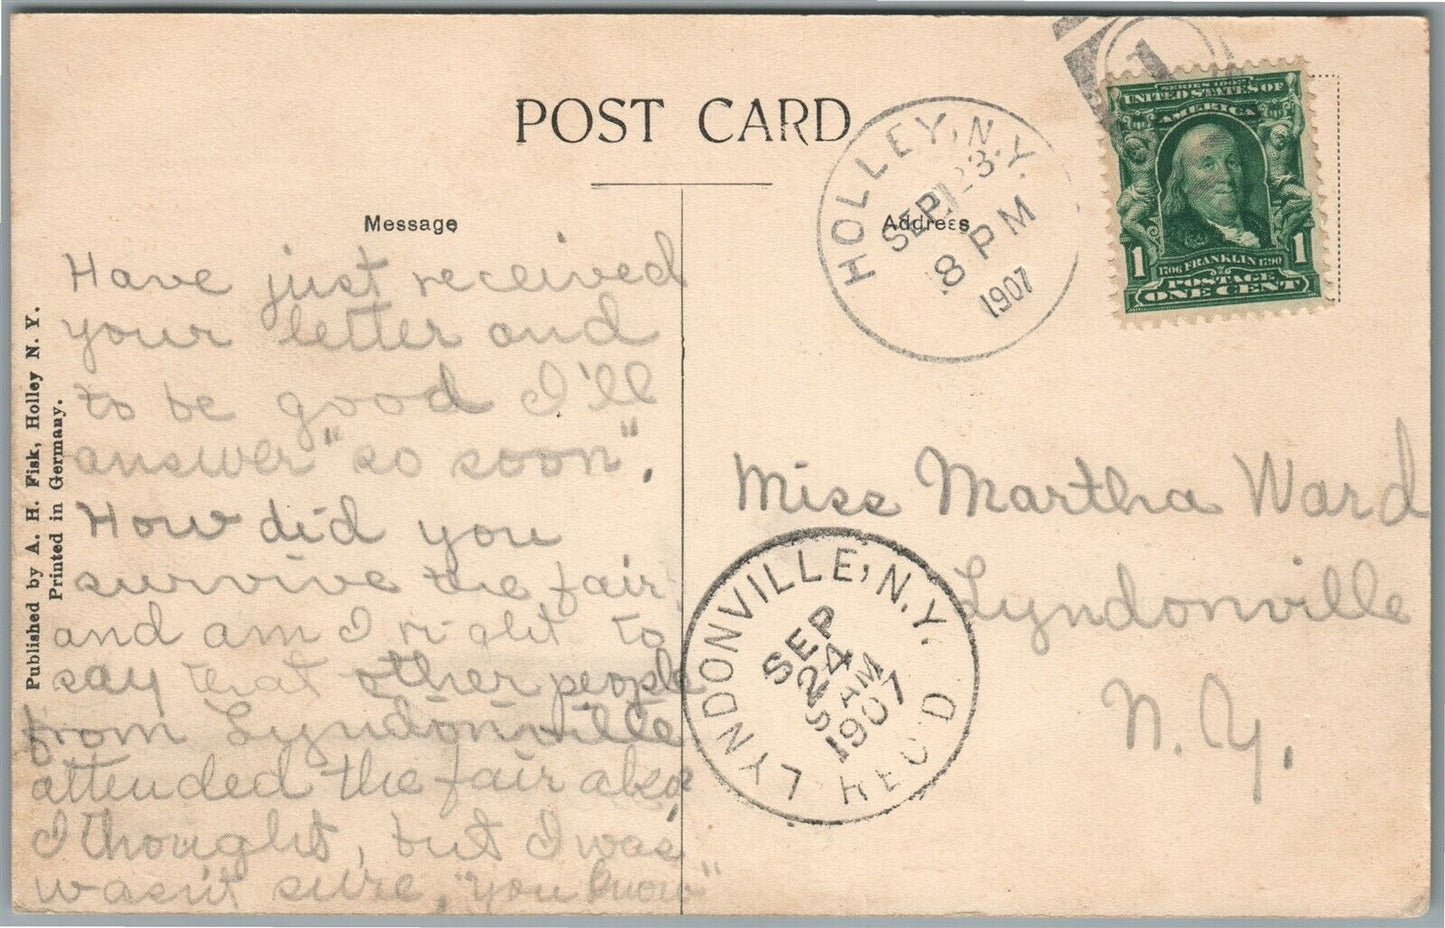 POST CARD
Message
Address
Published by A. H. Fisk, Holley N. Y.
Printed in Germany.
Have just received
your letter and
to be good I'll
answer "so soon".
How did you
survive the fair
and am I right to
say that other people
from Lyndonville
attended the fair also
I thought, but I was
wasn't sure, "you know"
HOLLEY, N.Y.
SEP 23
8 PM
1907
1
SERIES 1902
UNITED STATES OF
AMERICA
1 1
1706 FRANKLIN 1790
POSTAGE
ONE CENT
Miss Martha Ward
Lyndonville
N. Y.
LYNDONVILLE, N.Y.
SEP
24
9 AM
1907
REC'D